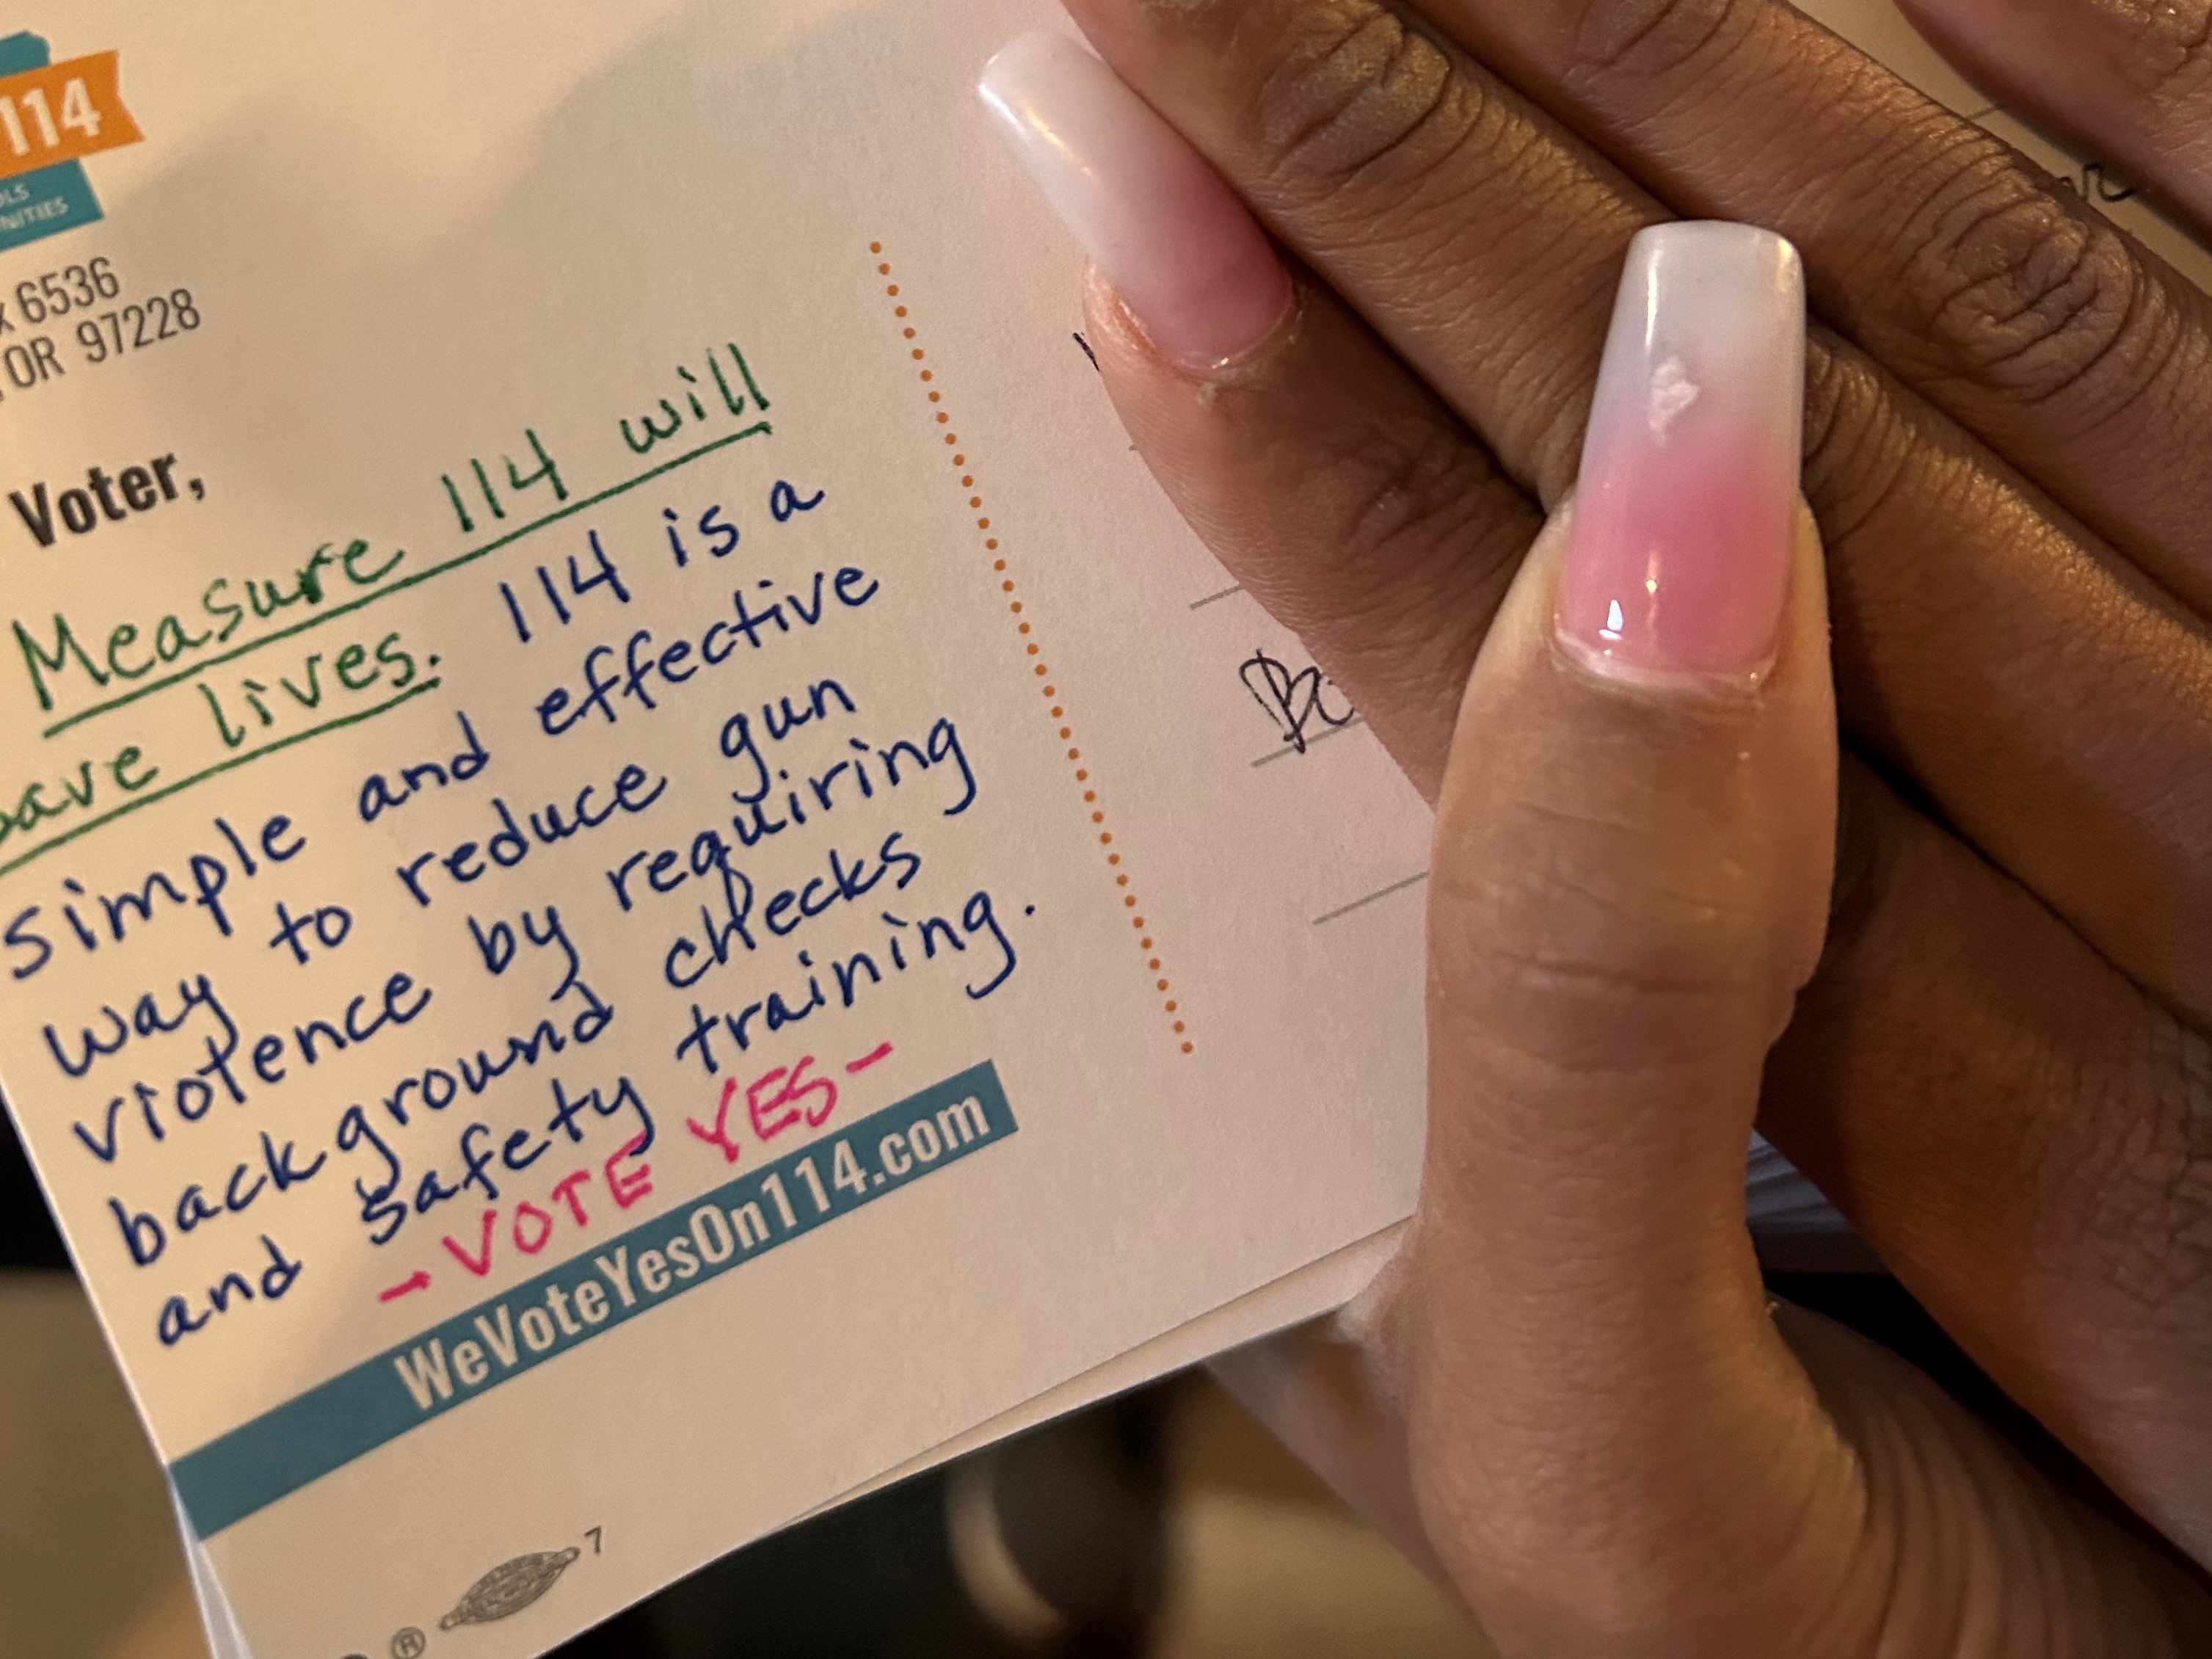 114
6536
OR 97228
Voter,
Measure 114 will
save lives. 114 is a
simple and effective
way to reduce gun
violence by requiring
background checks
and safety training.
- VOTE YES -
WeVoteYesOn114.com
® 7